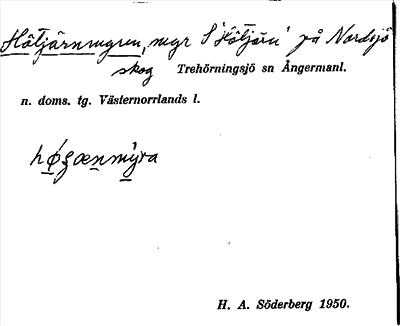 Hötjärnmyren, myr S 'Hötjärn' på Nordsjö
skog Trehörningsjö sn Ångermanl.
n. doms. tg. Västernorrlands l.
H. A. Söderberg 1950.